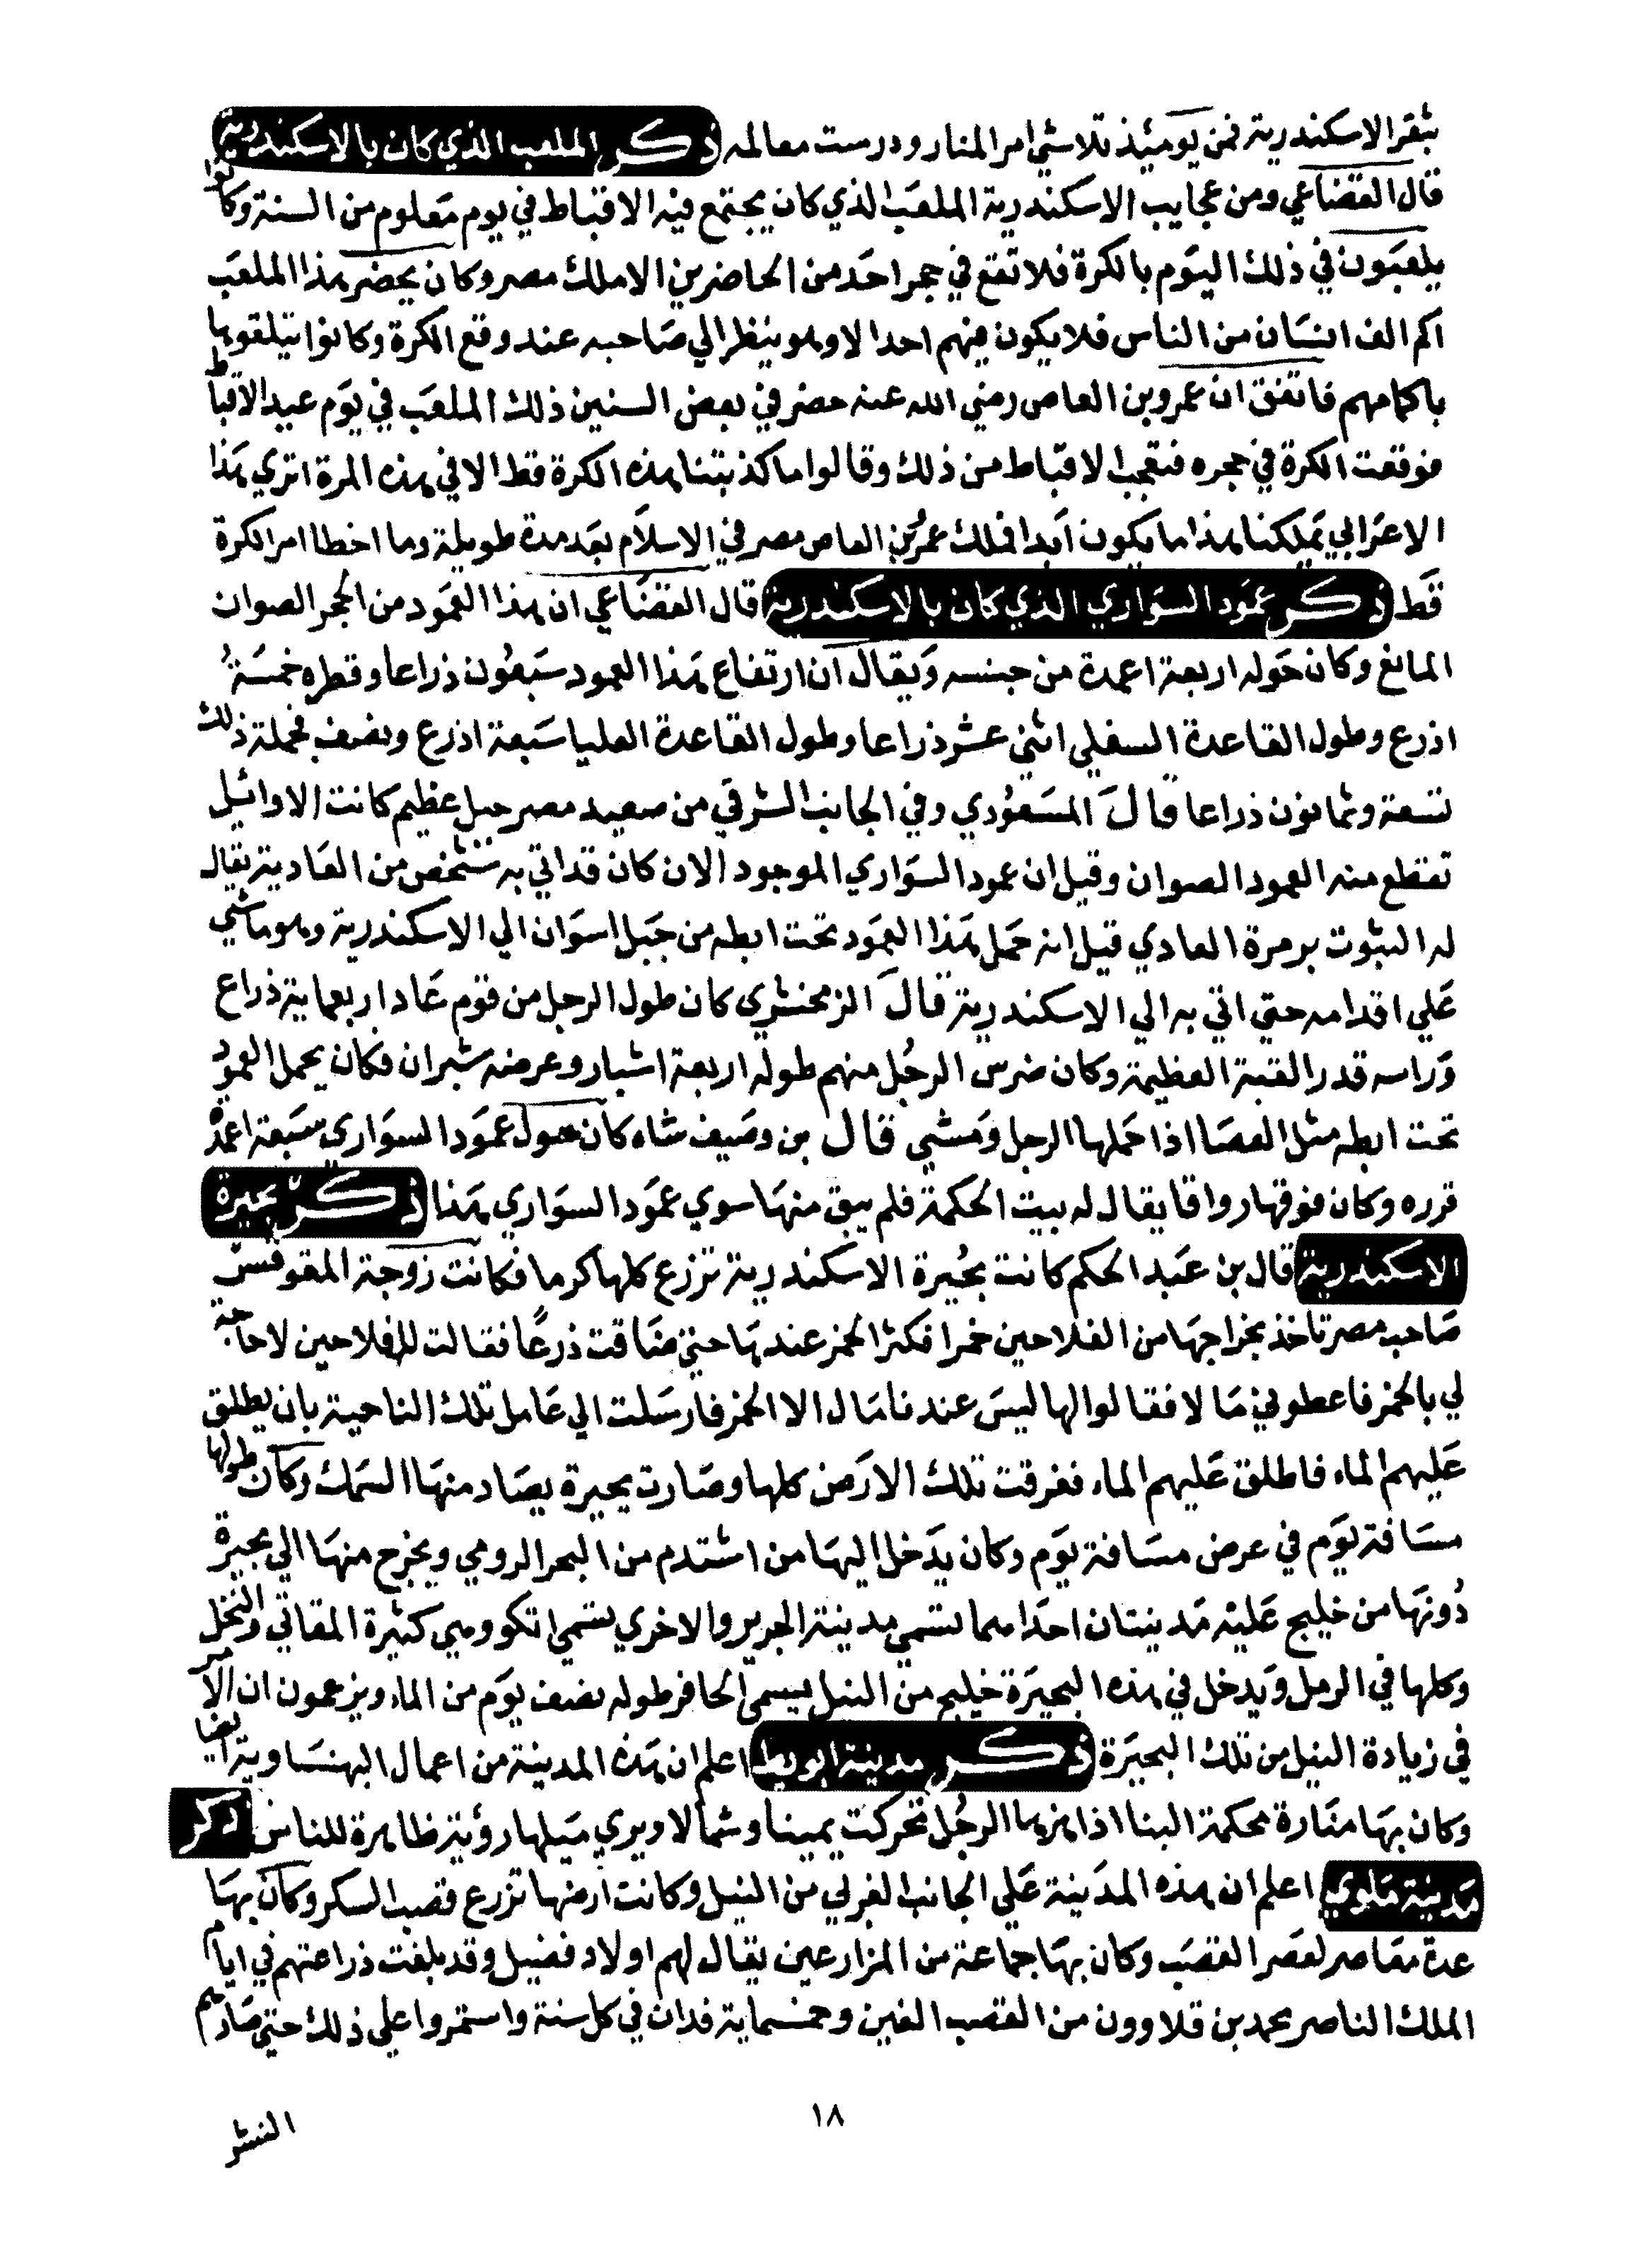 بثغر الاسكندرية فمن يوميئذ تلاشي امر المنار ودرست معالمه ذكر الملعب الذي كان بالاسكندرية
قال القضاعي ومن عجايب الاسكندرية الملعب الذي كان يجتمع فيه الاقباط في يوم معلوم من السنة وكانوا
يلعبون في ذلك اليوم بالكرة فلا تقع في حجر احد من الحاضرين الا ملك مصر وكان يحضر هذا الملعب
اكم الف انسان من الناس فلا يكون فيهم احدا لا وهو ينظر الي صاحبه عند وقع الكرة وكانوا يتلقوها
باكمامهم فاتفق ان عمرو بن العاص رضي الله عنه حضر في بعض السنين ذلك الملعب في يوم عيد الاقباط
فوقعت الكرة في حجره فتعجب الاقباط من ذلك وقالوا ما كذبتنا هذه الكرة قط الا في هذه المرة اتري هذا
الاعرابي يملكنا هذا ما يكون ابدا فملك عمرو بن العاص مصر في الاسلام بعد مدة طويلة وما اخطا امر الكرة
قط ذكر عمود السواري الذي كان بالاسكندرية قال القضاعي ان هذا العمود من الحجر الصوان
المانع وكان حوله اربعة اعمدة من جنسه ويقال ان ارتفاع هذا العمود سبعون ذراعا وقطره خمسة
اذرع وطول القاعدة السفلي اثني عشر ذراعا وطول القاعدة العليا سبعة اذرع ونصف فجملة ذلك
تسعة وثمانون ذراعا قال المسعودي وفي الجانب الشرقي من صعيد مصر جبل عظيم كانت الاوائيل
تقطع منه العمود الصوان وقيل ان عمود السواري الموجود الان كان قد اتي به شخص من العادية يقال
له البثوت بر مرة العادي قيل انه حمل هذا العمود تحت ابطه من جبل اسوان الي الاسكندرية وهو ماشي
علي اقدامه حتي اتي به الي الاسكندرية قال الزمخشري كان طول الرجل من قوم عاد اربعماية ذراع
وراسه قدر القبة العظيمة وكان ضرس الرجل منهم طوله اربعة اشبار وعرضه شبران فكان يحمل العمود
تحت ابطه مثل العصا اذا حملها الرجل ومشي قال بن وصيف شاه كان حول عمود السواري سبعة اعمدة
قرره وكان فوقها رواقا يقال له بيت الحكمة فلم يبق منها سوي عمود السواري هذا ذكر بحيرة
الاسكندرية قال بن عبد الحكم كانت بحيرة الاسكندرية تزرع كلها كرما فكانت زوجة المقوقس
صاحب مصر تاخذ بخراجها من الفلاحين خمرا فكثر الخمر عندها حتي ضاقت ذرعا فقالت للفلاحين لا حاجة
لي بالخمر فاعطوني مالا فقالوا لها ليس عندنا مال الا الخمر فارسلت الي عامل تلك الناحية بان يطلق
عليهم الماء فاطلق عليهم الماء فغرقت تلك الارض كلها وصارت بحيرة يصاد منها السمك وكان طولها
مسافة يوم في عرض مسافة يوم وكان يدخل اليها من اشتدم من البحر الرومي ويخرج منها الي بحيرة
دونها من خليج عليه مدينتان احداهما تسمي مدينة الجرير والاخري تسمي اتكو وهي كثيرة المقاتي والنخل
وكلها في الرمل ويدخل في هذه البحيرة خليج من النيل يسمي الحافر طوله نصف يوم من الماء ويزعمون ان الامر
في زيادة النيل من تلك البحيرة ذكر مدينة اعلم ان هذه المدينة من اعمال البهنساوية ايضا
وكان بها منارة محكمة البنا اذا هزها الرجل تحركت يمينا وشمالا ويري ميلها رؤية ظاهرة للناس ذكر
مدينة ملوي اعلم ان هذه المدينة علي الجانب الغربي من النيل وكانت ارضها تزرع قصب السكر وكان بها
عدة معاصر لعصر القصب وكان بها جماعة من المزارعين يقال لهم اولاد فضيل وقد بلغت ذراعتهم في ايام
الملك الناصر محمد بن قلاوون من القصب الفين وخمسماية فدان في كل سنة واستمروا علي ذلك حتي صادرهم
١٨
النشر